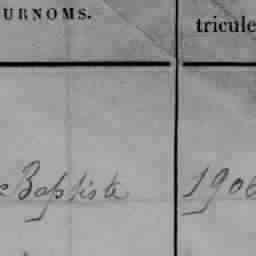 URNOMS. tricule
e Baptiste 1906